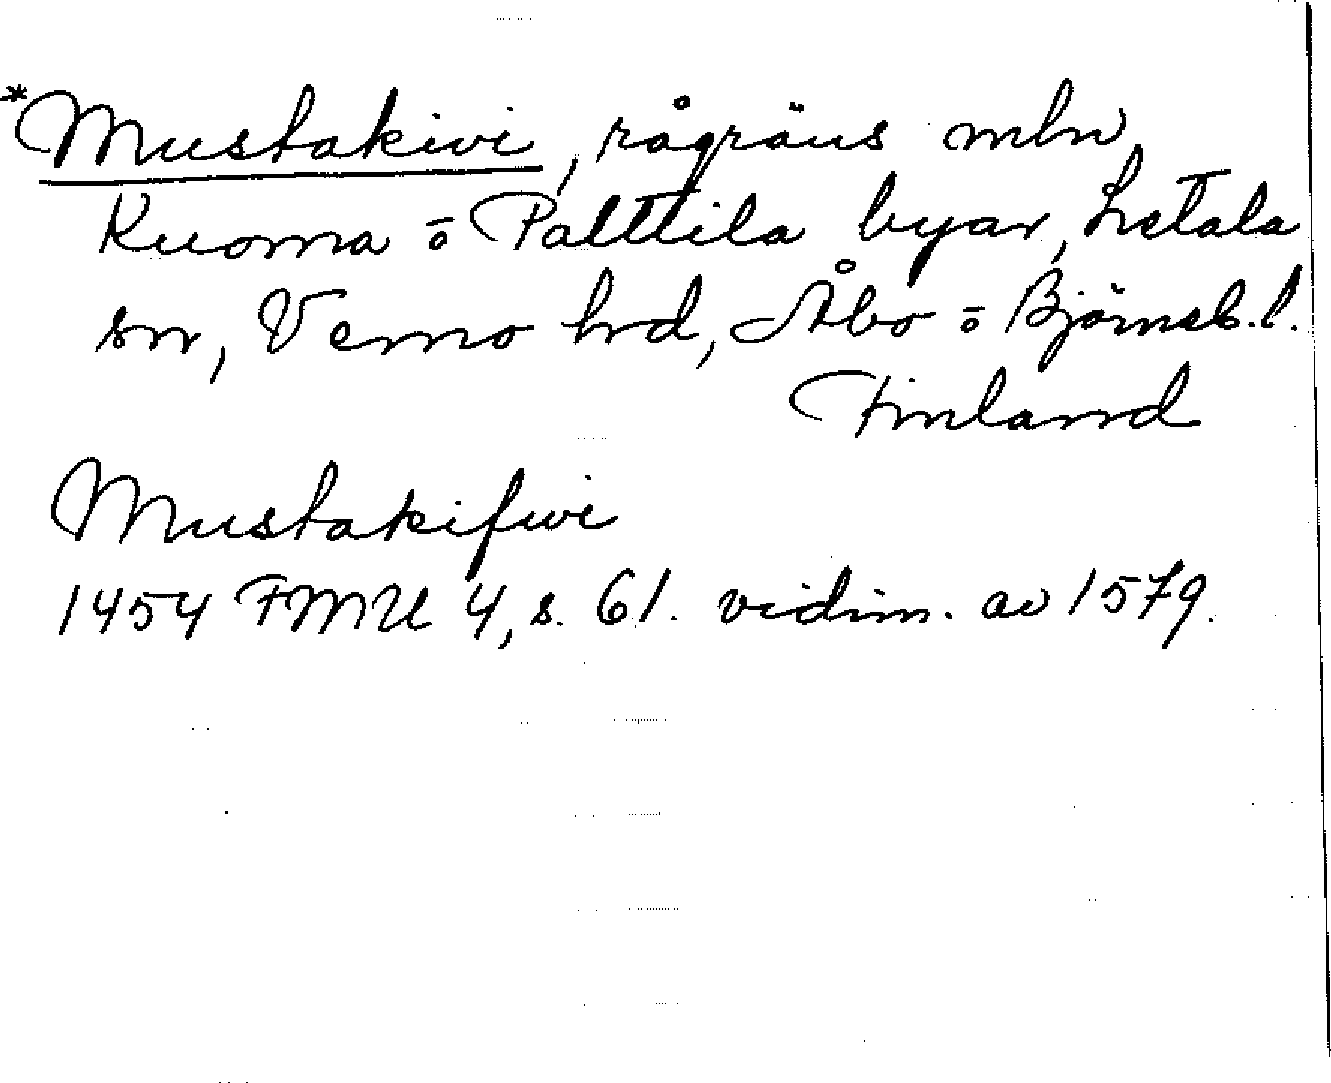 *Mustakivi, rågräns mln
Kuoma o Palttila byar, Letala
sn, Vemo hrd, Åbo o Björneb. l.
Finland
Mustakifwi
1454 FMU 4, s. 61. vidim. av 1579.